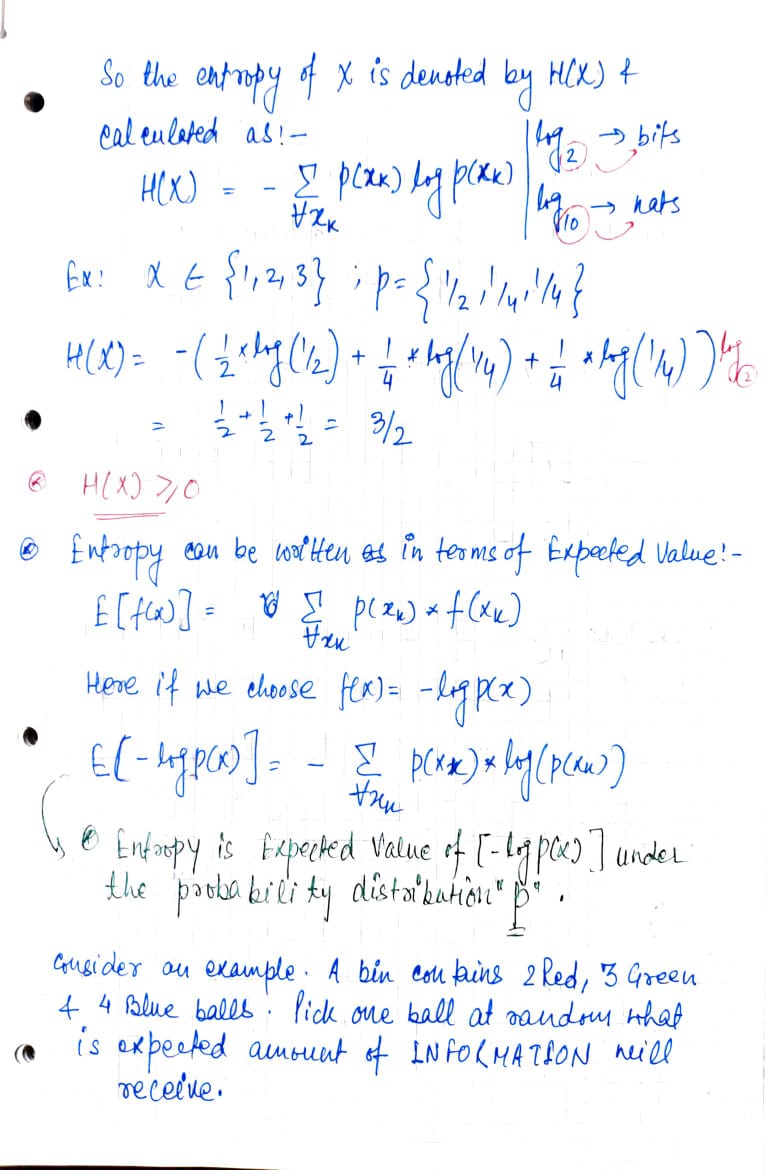 So the entropy of X is denoted by H(X) &
calculated as:-
log₂ → bits
H(X) = - Σ p(xₖ) log p(xₖ)
∀xₖ
log₁₀ → nats
Ex: x ∈ {1, 2, 3} ; p = {1/2, 1/4, 1/4}
H(X) = -(1/2 × log(1/2) + 1/4 * log(1/4) + 1/4 * log(1/4)) log₂
= 1/2 + 1/2 + 1/2 = 3/2
H(X) ≥ 0
Entropy can be written as in terms of Expected Value:-
E[f(x)] = Σ p(xₖ) * f(xₖ)
∀xₖ
Here if we choose f(x) = -log p(x)
E[-log p(x)] = - Σ p(xₖ) * log(p(xₖ))
∀xₖ
Entropy is Expected Value of [-log p(x)] under
the probability distribution "p".
Consider an example. A bin contains 2 Red, 3 Green
& 4 Blue balls. Pick one ball at random what
is expected amount of INFORMATION will
receive.